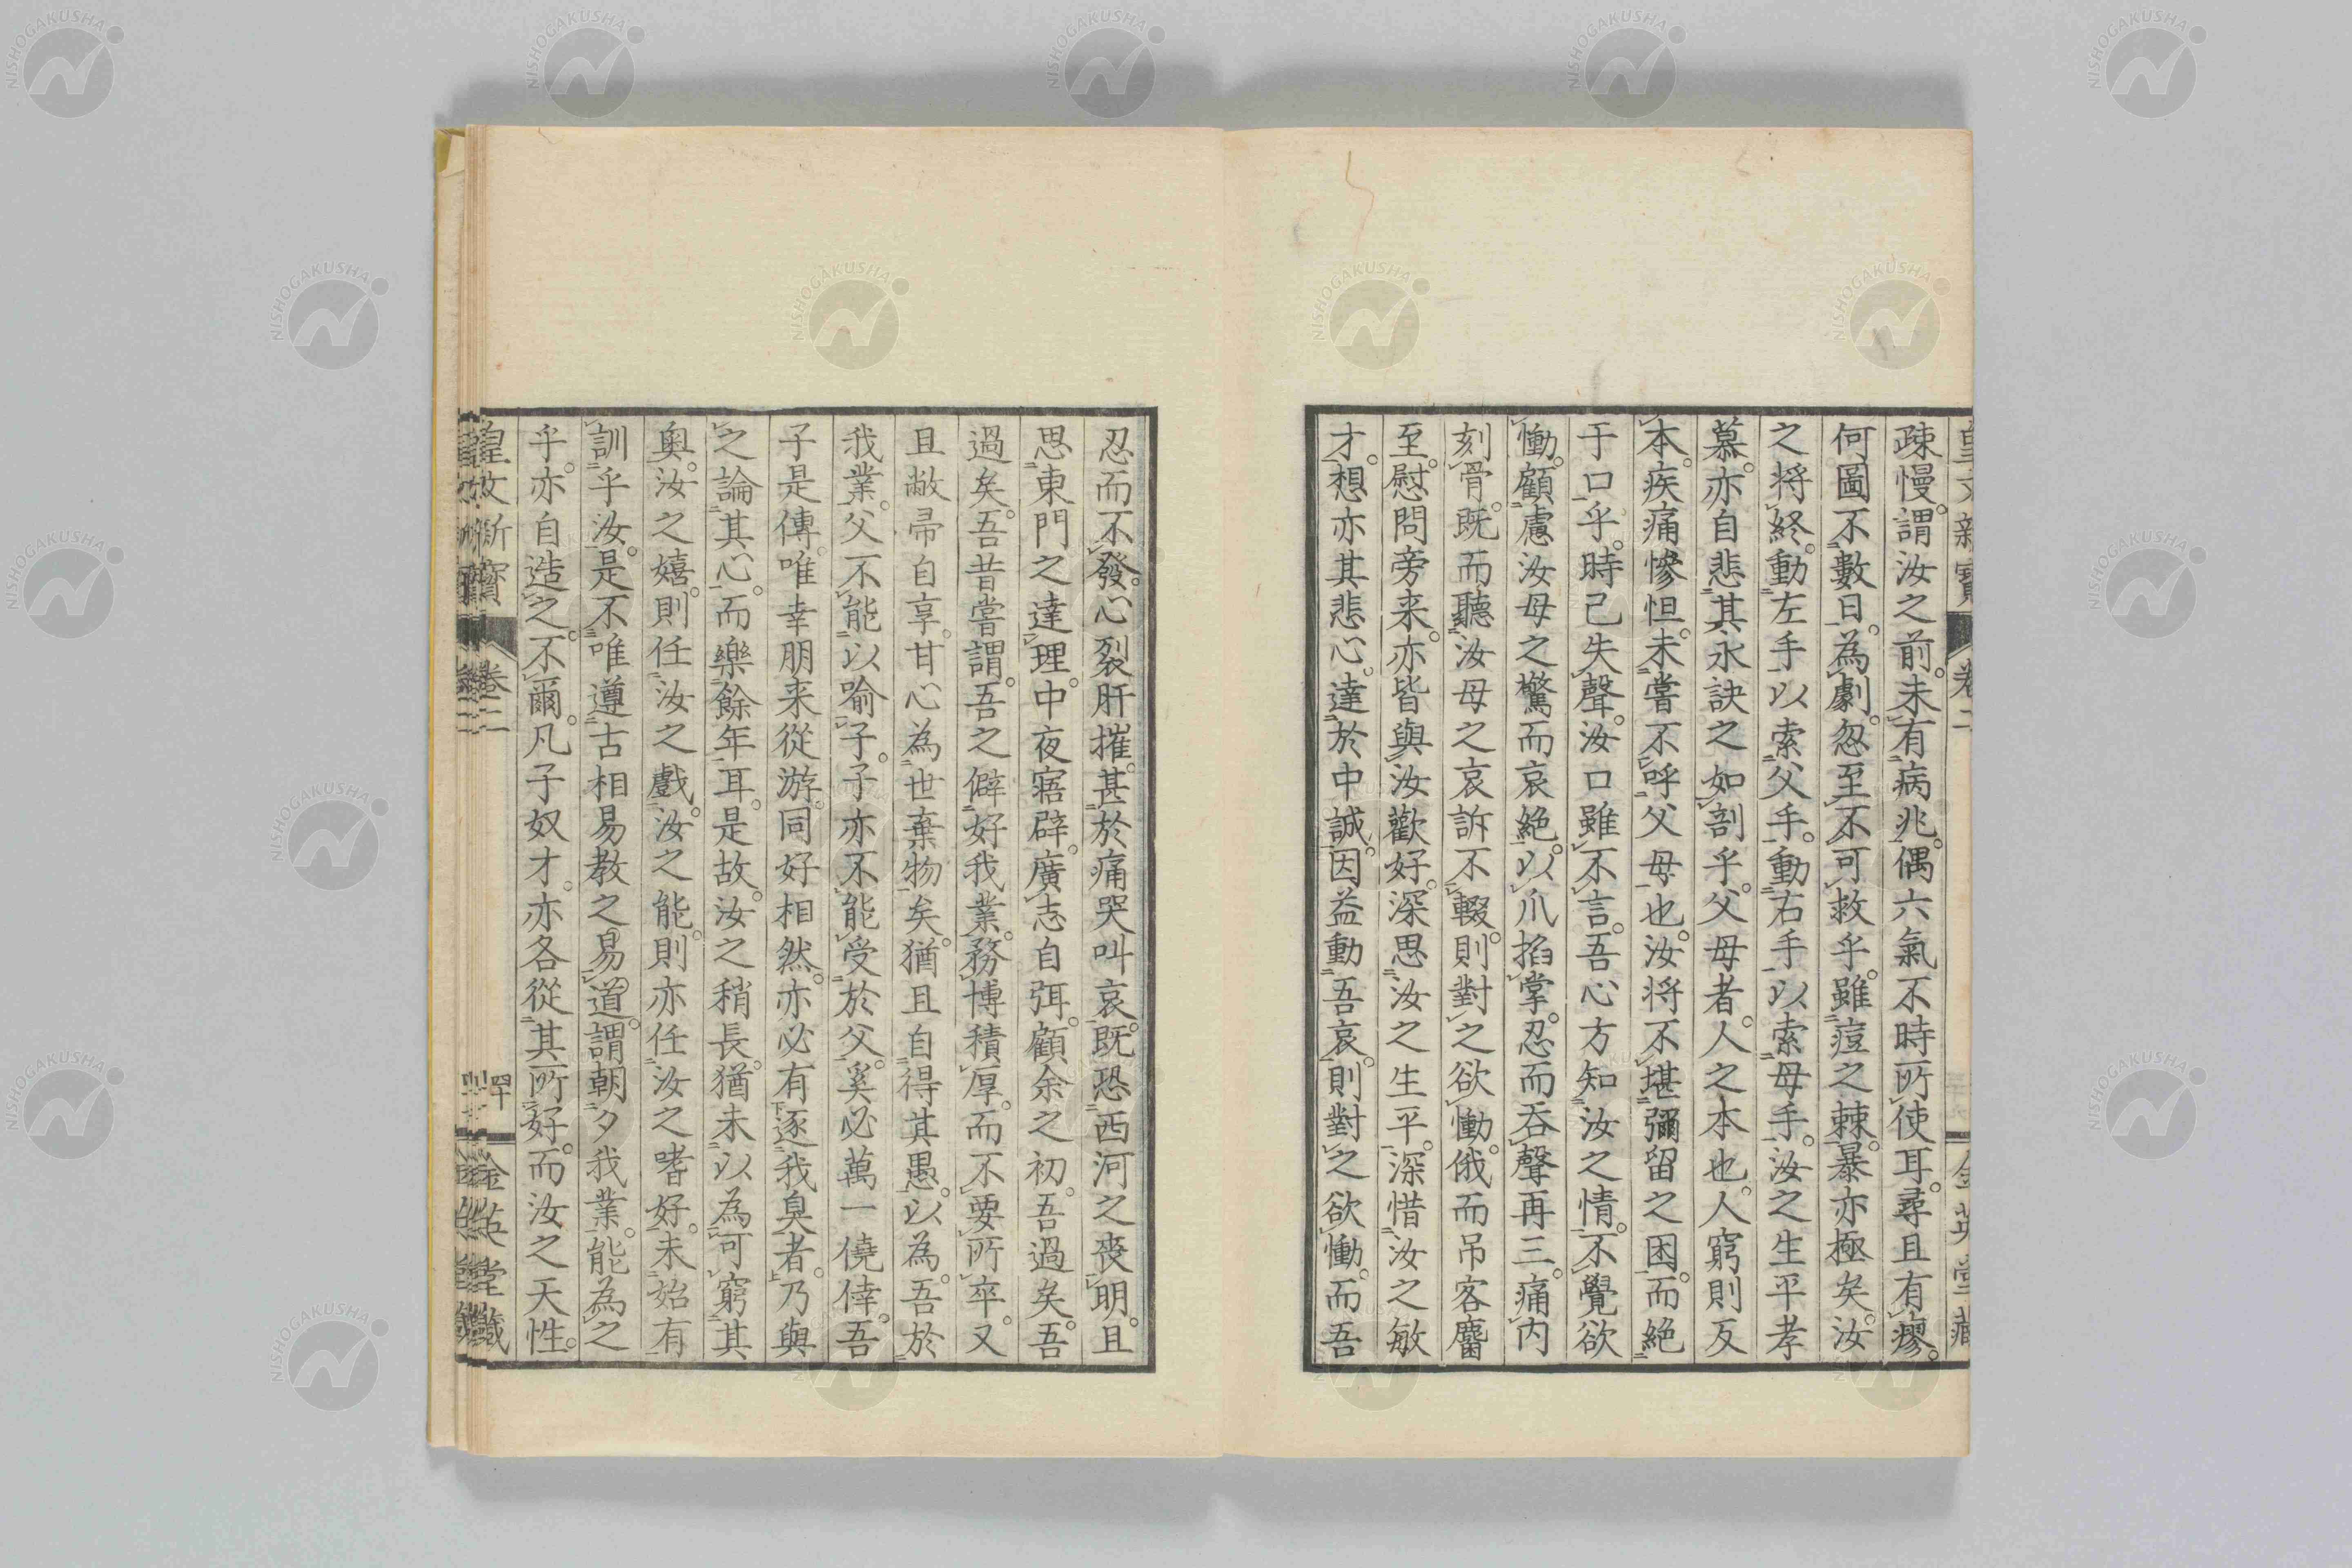 疎慢。謂汝之前。未有病兆。偶六氣不時所使耳。尋且有瘳。
何圖不數日。為劇。忽至不可救乎。雖痘之棘。暴亦極矣。汝
之將終。動左手以索父手。動右手以索母手。汝之生平孝
慕。亦自悲其永訣之如剖乎。父母者。人之本也。人窮則反
本。疾痛慘怛。未嘗不呼父母也。汝将不堪彌留之困。而絕
于口乎。時已失聲。汝口雖不言。吾心方知汝之情。不覺欲
慟。顧慮汝母之驚而哀絕。以爪掐掌。忍而吞聲再三。痛內
刻骨。既而聽汝母之哀訴不輟。則對之欲慟。俄而吊客麕
至。慰問旁来。亦皆與汝歡好。深思汝之生平。深惜汝之敏
才。想亦其悲心。達於中誠。因益動吾哀。則對之欲慟。而吾
忍而不發。心裂肝摧。甚於痛哭叫哀。既恐西河之喪明。且
思東門之達理。中夜寤辟。廣志自弭。顧余之初。吾過矣。吾
過矣。吾昔嘗謂。吾之僻好我業。務博積厚。而不要所卒。又
且敝帚自享。甘心為世棄物矣。猶且自得其愚。以為。吾於
我業。父不能以喻子。子亦不能受於父。奚必萬一僥倖。吾
子是傳。唯幸朋来從游。同好相然。亦必有逐我臭者。乃與
之論其心。而樂餘年耳。是故。汝之稍長。猶未以為可窮其
奥。汝之嬉。則任汝之戲。汝之能。則亦任汝之嗜好。未始有
訓乎汝。是不唯遵古相易教之易道。謂朝夕我業。能為之
乎。亦自造之。不爾。凡子奴才。亦各從其所好。而汝之天性。
皇文新寶 卷二 四十 金英堂藏